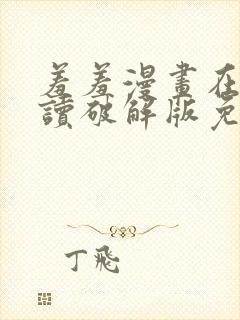 羞羞漫畫在
讀破解版免
丁飛